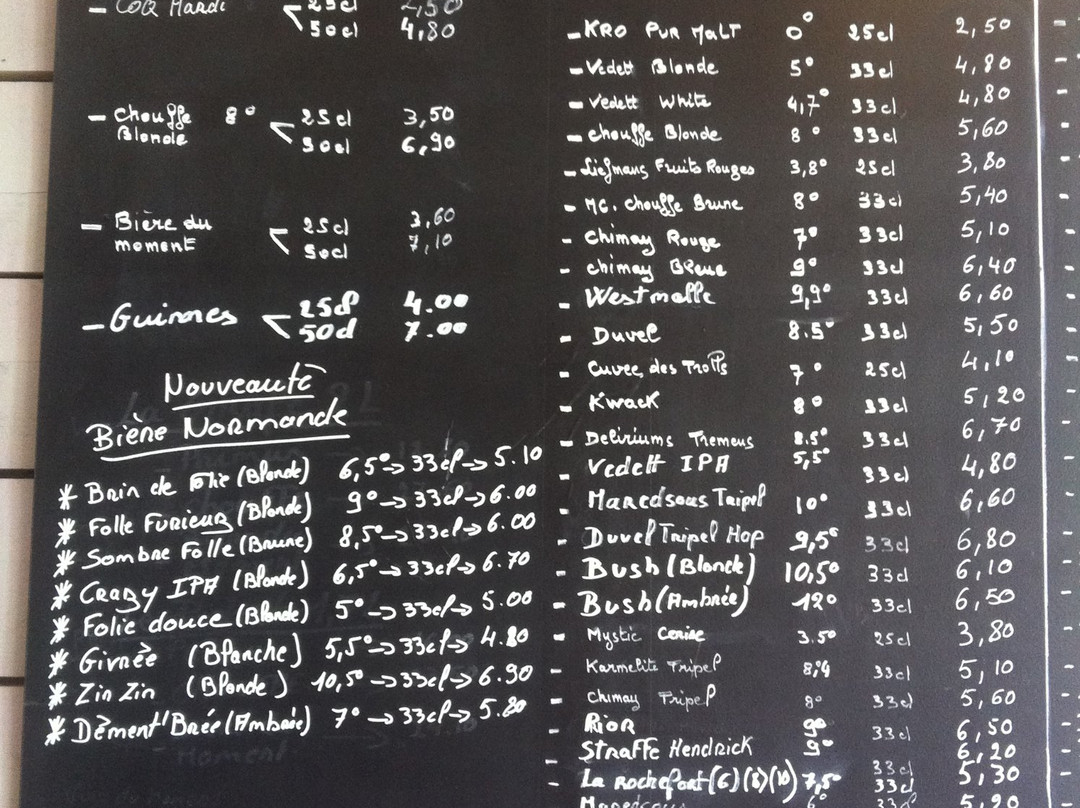 - COQ Hardi 25cl 2,50
50cl 4,80
- Chouffe 8° 25cl 3,50
Blonde 50cl 6,90
- Bière du 25cl 3,60
moment 50cl 7,10
- Guinnes 25cl 4.00
50cl 7.00
Nouveauté
Bière Normande
* Brin de Folie (Blonde) 6,5° → 33cl → 5.10
* Folle Furieuz (Blonde) 9° → 33cl → 6.00
* Sombre Folle (Brune) 8,5° → 33cl → 6.00
* Crazy IPA (Blonde) 6,5° → 33cl → 6.70
* Folie douce (Blonde) 5° → 33cl → 5.00
* Givrée (Blanche) 5,5° → 33cl → 4.80
* Zin Zin (Blonde) 10,5° → 33cl → 6.90
* Dément'Brée (Ambrée) 7° → 33cl → 5.80
- KRO PUR MALT 0° 25cl 2,50
- Vedett Blonde 5° 33cl 4,80
- Vedett White 4,7° 33cl 4,80
- Chouffe Blonde 8° 33cl 5,60
- Liefmans Fruits Rouges 3,8° 25cl 3,80
- MC. Chouffe Brune 8° 33cl 5,40
- Chimay Rouge 7° 33cl 5,10
- Chimay Bleue 9° 33cl 6,40
- Westmalle 9,9° 33cl 6,60
- Duvel 8.5° 33cl 5,50
- Cuvee des Trolls 7° 25cl 4,10
- Kwack 8° 33cl 5,20
- Deliriums Tremens 8.5° 33cl 6,70
- Vedett IPA 5,5° 33cl 4,80
- Maredsous Tripel 10° 33cl 6,60
- Duvel Tripel Hop 9,5° 33cl 6,80
- Bush (Blonde) 10,5° 33cl 6,10
- Bush (Ambrée) 12° 33cl 6,50
- Mystic Cerise 3.5° 25cl 3,80
- Karmelite Tripel 8,4 33cl 5,10
- Chimay Tripel 8° 33cl 5,60
- RIOR 9° 33cl 6,50
- STRAFFE HENDRICK 9° 33cl 6,20
- La Rochefort (6) (8) (10) 7,5° 33cl 5,30
Maredsous 6° 33cl 5,90